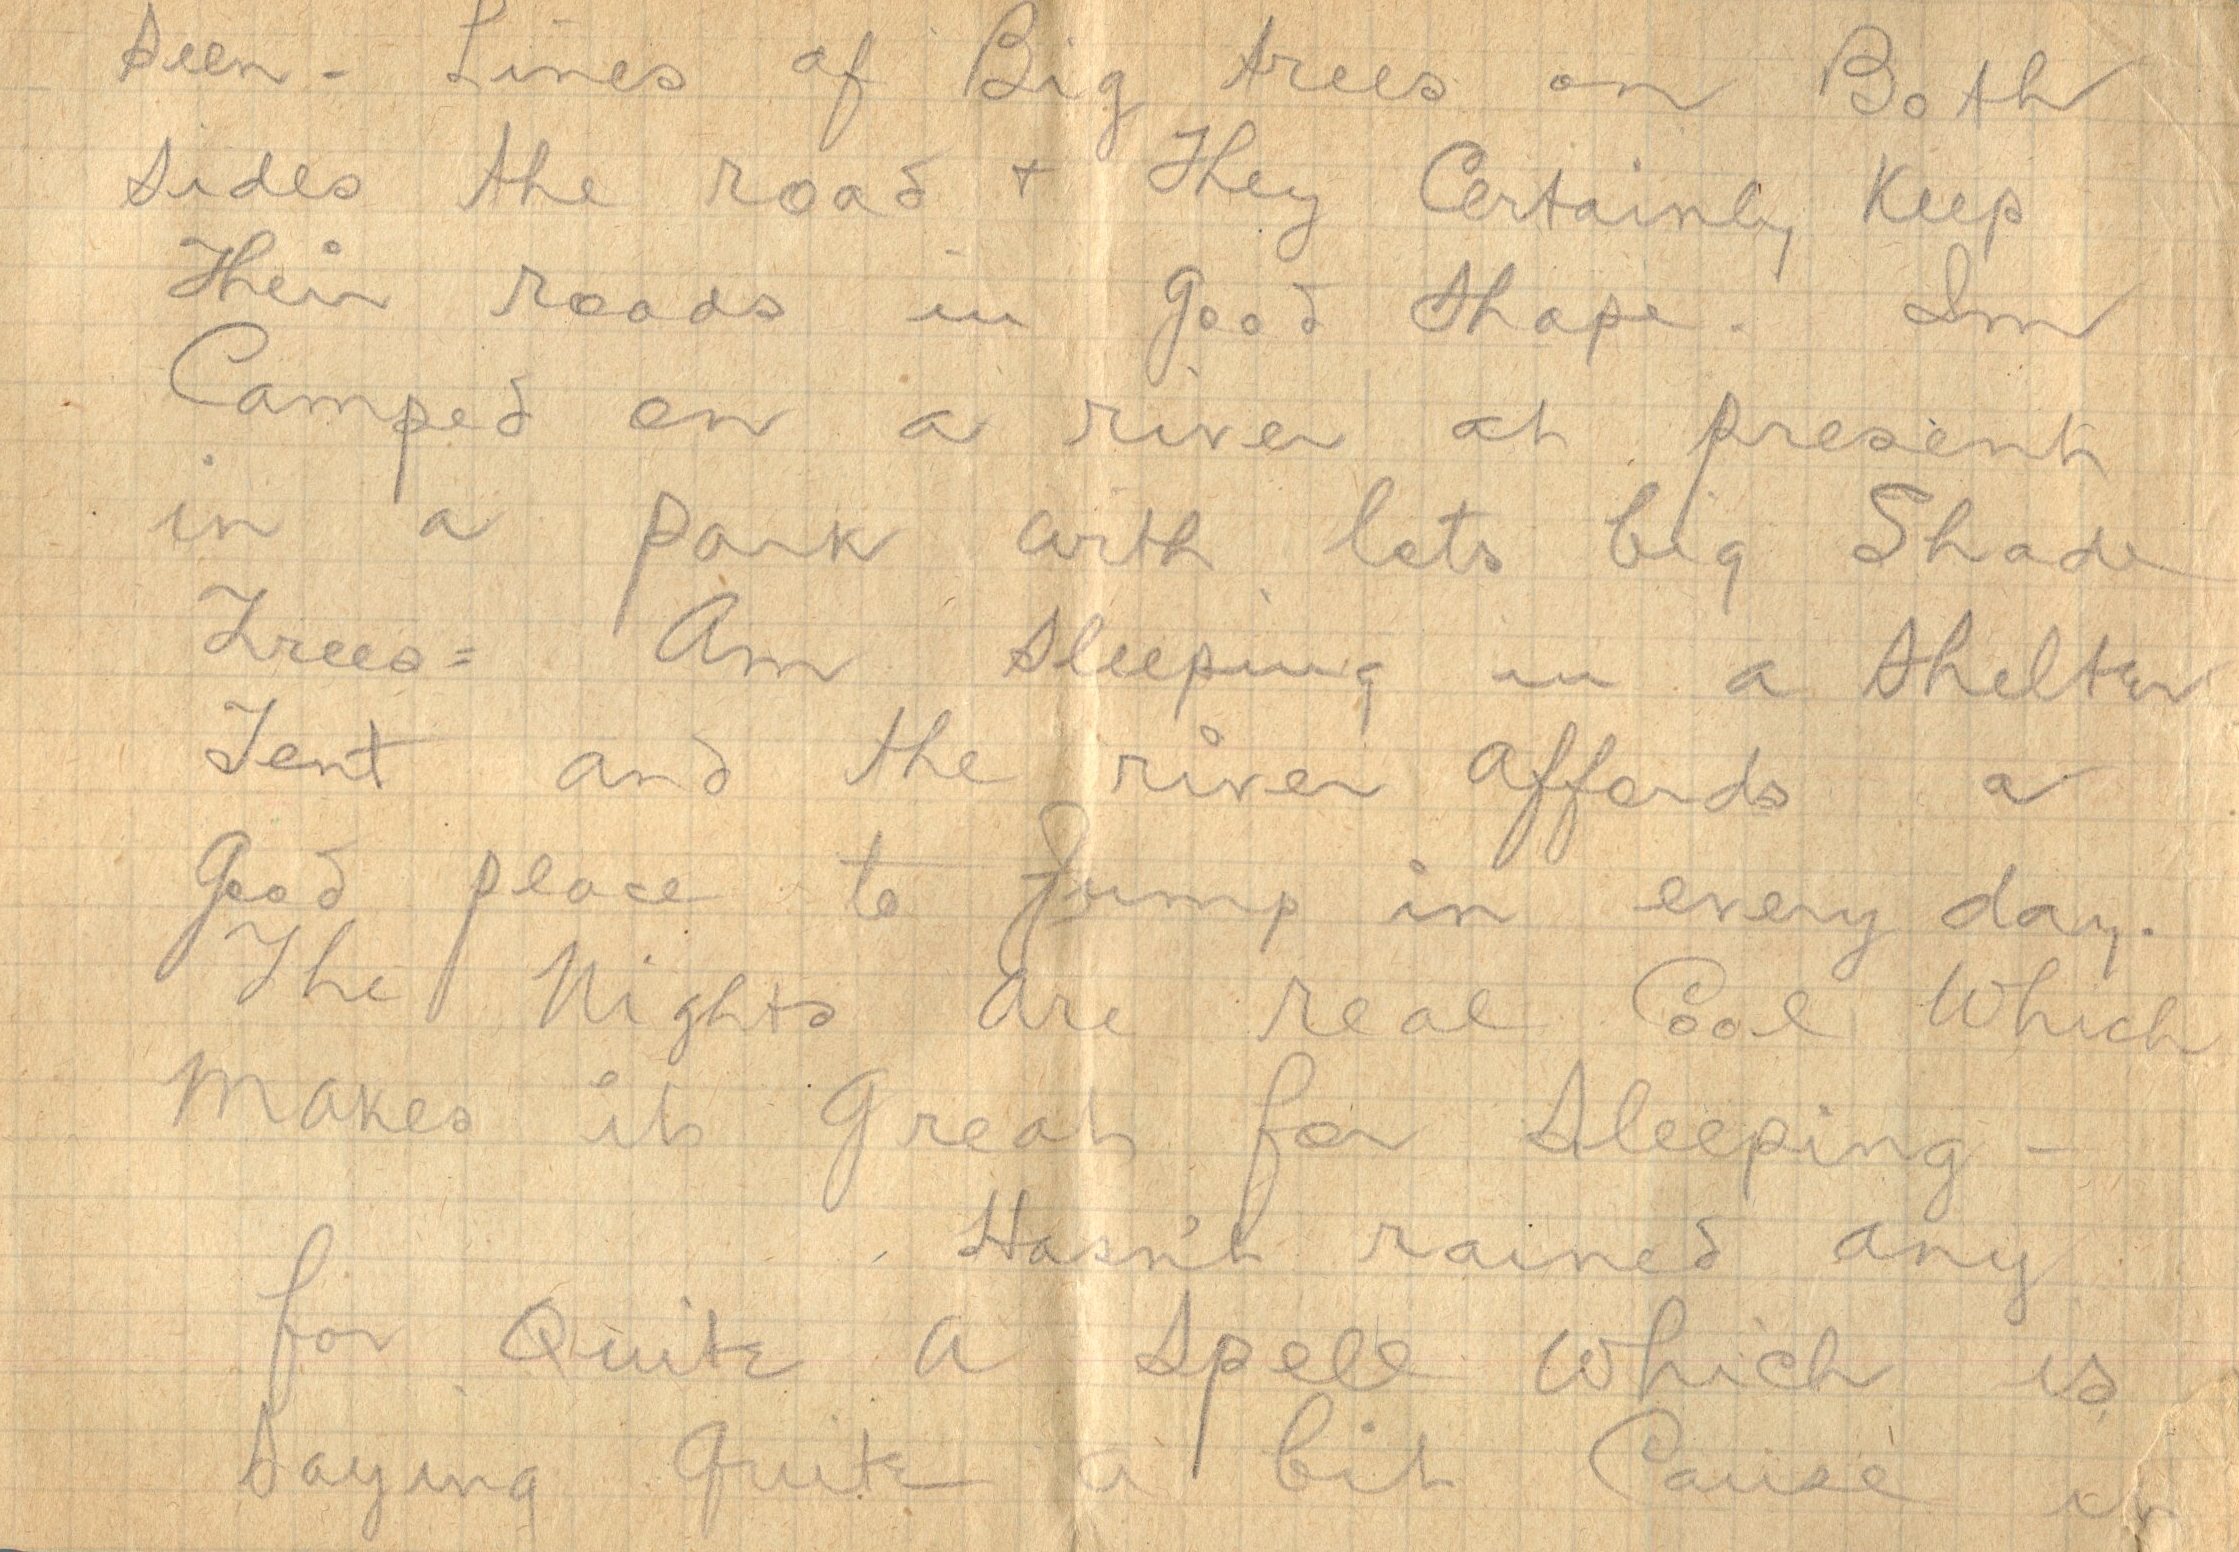 seen - Lines of Big trees on Both
sides the road + They Certainly Keep
Their roads in good shape. Im
Camped on a river at present
in a park with lots big Shade
Trees = Am sleeping in a shelter
Tent and the river affords a
good place to Jump in every day.
The Nights are real Cool Which
makes it Great for sleeping -
Hasn't rained any
for Quite a spell Which is
saying quite a bit Cause in